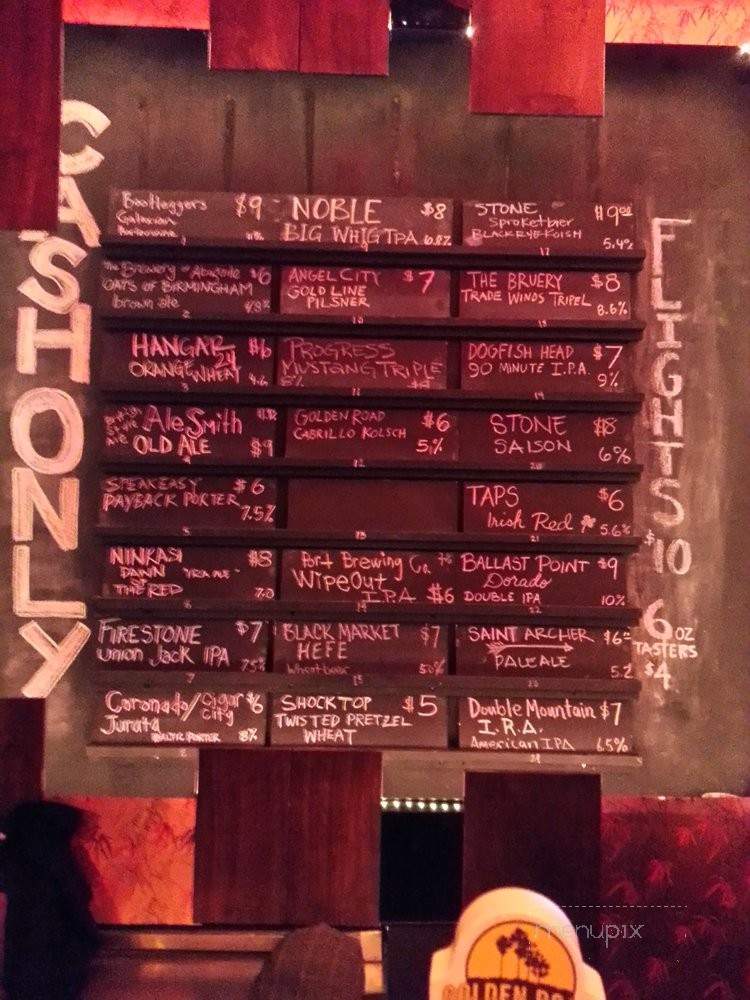 CASH ONLY
Bootleggers $9
Galaxian
1
The Brewery at Abigaile $6
OATS OF BIRMINGHAM
brown ale
2
HANGAR 24 $6
ORANGE WHEAT 4.6
3
AleSmith
OLD ALE $9
4
SPEAKEASY $6
PAYBACK PORTER
7.5%
5
NINKASI $8
DAWN
OF
THE RED 7.0
6
FIRESTONE $7
union Jack IPA 7.5%
7
Coronado/Cigar City $6
Juruta
BALTIC PORTER 8%
NOBLE $8
BIG WHIG IPA 6.8%
9
ANGEL CITY $7
GOLD LINE
PILSNER
10
PROGRESS
MUSTANG TRIPLE
8%
11
GOLDEN ROAD $6
CABRILLO KOLSCH
5%
12
13
Port Brewing Co.
WIPEOUT
I.P.A $6
14
BLACK MARKET $7
HEFE
Wheat beer 5%
15
SHOCK TOP $5
TWISTED PRETZEL
WHEAT
STONE $9.00
Sproketbier
BLACK RYE KOLSH
5.4%
17
THE BRUERY $8
TRADE WINDS TRIPEL
8.6%
18
DOGFISH HEAD $7
90 MINUTE I.P.A.
9%
19
STONE $8
SAISON
6%
20
TAPS $6
Irish Red 5.6%
21
BALLAST POINT $9
Dorado
DOUBLE IPA 10%
22
SAINT ARCHER $6
PALE ALE
5.2
23
Double Mountain $7
I.R.A.
American IPA 6.5%
24
FLIGHTS
$10
6 OZ
TASTERS
$4
menupix
GOLDEN RO